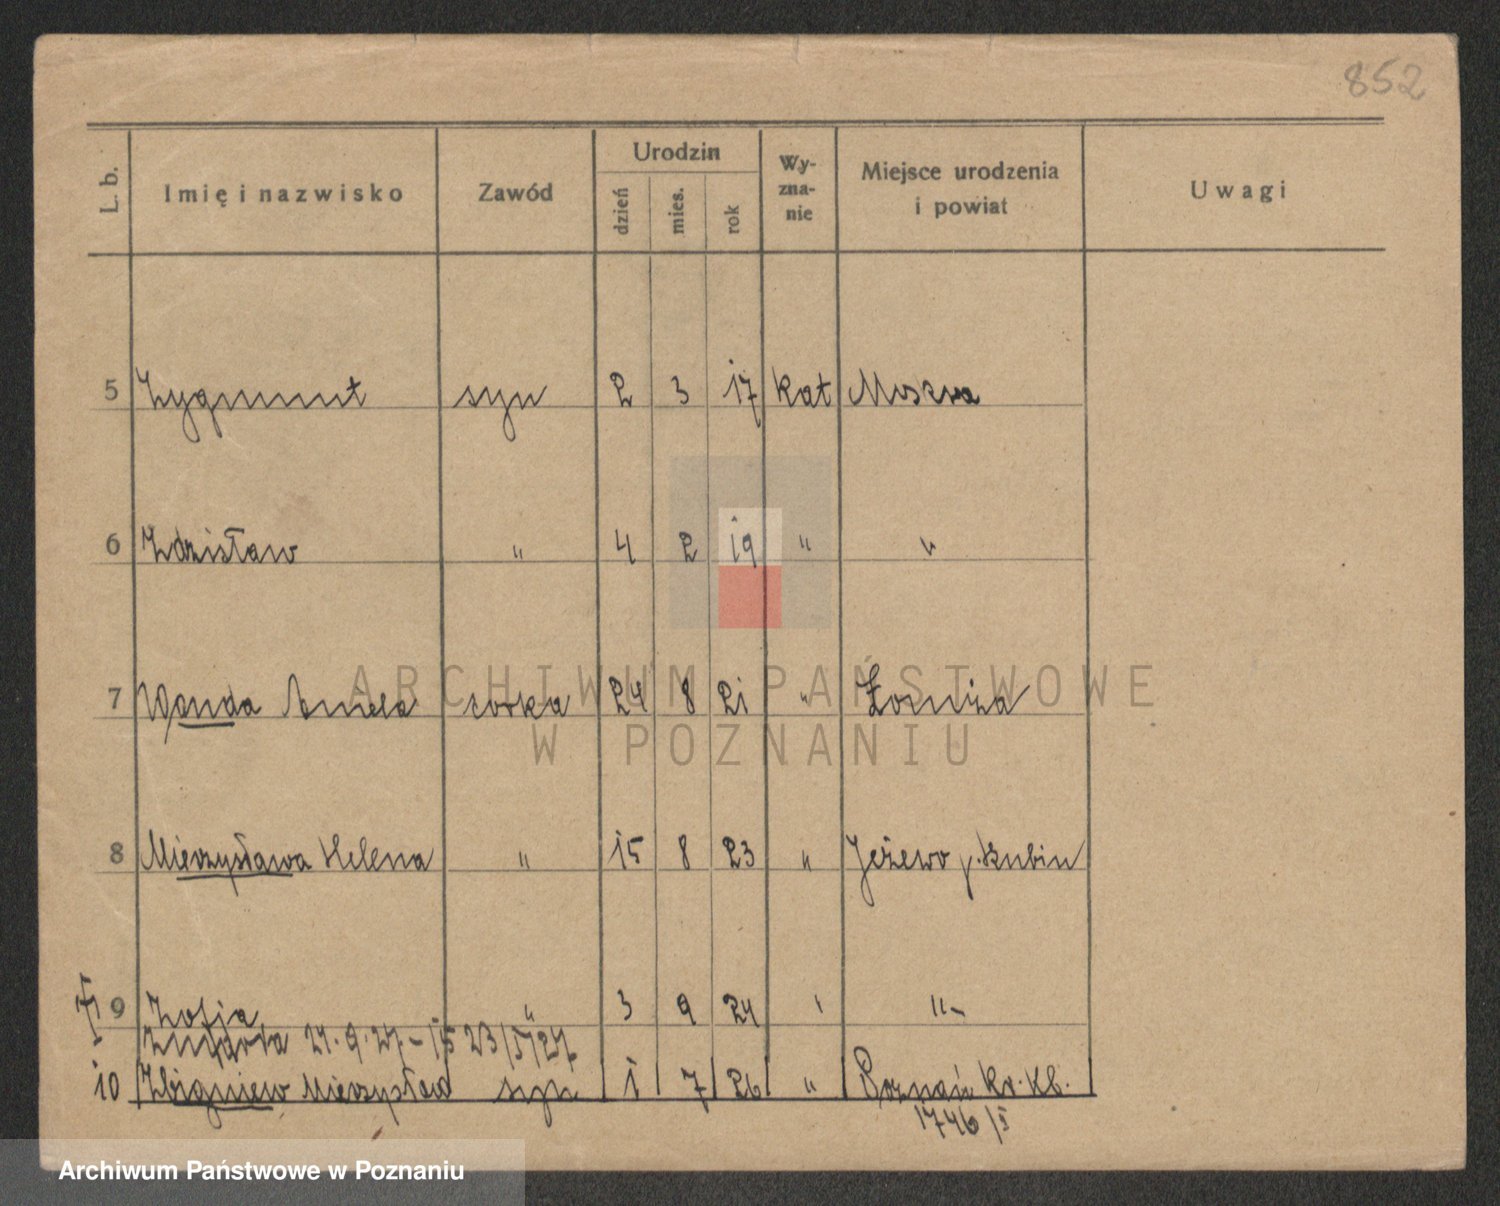 852
L. b. Imię i nazwisko Zawód Urodzin dzień mies. rok Wy-zna-nie Miejsce urodzenia i powiat Uwagi
5 Zygmunt syn 2 3 17 kat Moskva
6 Zdzisław " 4 2 19 " "
7 Wanda Aniela corka 24 8 21 " Łomża
8 Mieczysława Helena " 15 8 23 " Jeżewo p. Lubin
9 Zofja " 3 9 24 " "-
Zmarła 21.9.27 - 15 23/5/27
10 Zbigniew Mieczysław syn 1 7 26 " Poznań
1746/I
ARCHIWUM PAŃSTWOWE
W POZNANIU
Archiwum Państwowe w Poznaniu